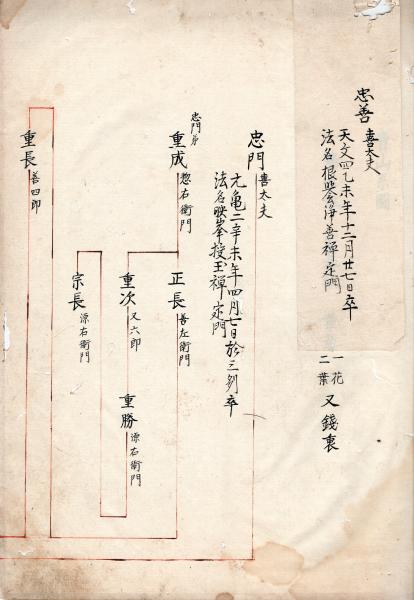 忠善 喜太夫
天文四乙未年十二月廿七日卒
法名根翁浄善禅定門
一花
二葉
又錢裏
忠門 喜太夫
元亀二辛未年四月七日於三刕卒
法名映峯授玉禅定門
忠門弟
重成 惣右衛門
正長 善左衛門
重次 又六郎
重勝 源右衛門
宗長 源右衛門
重長 善四郎